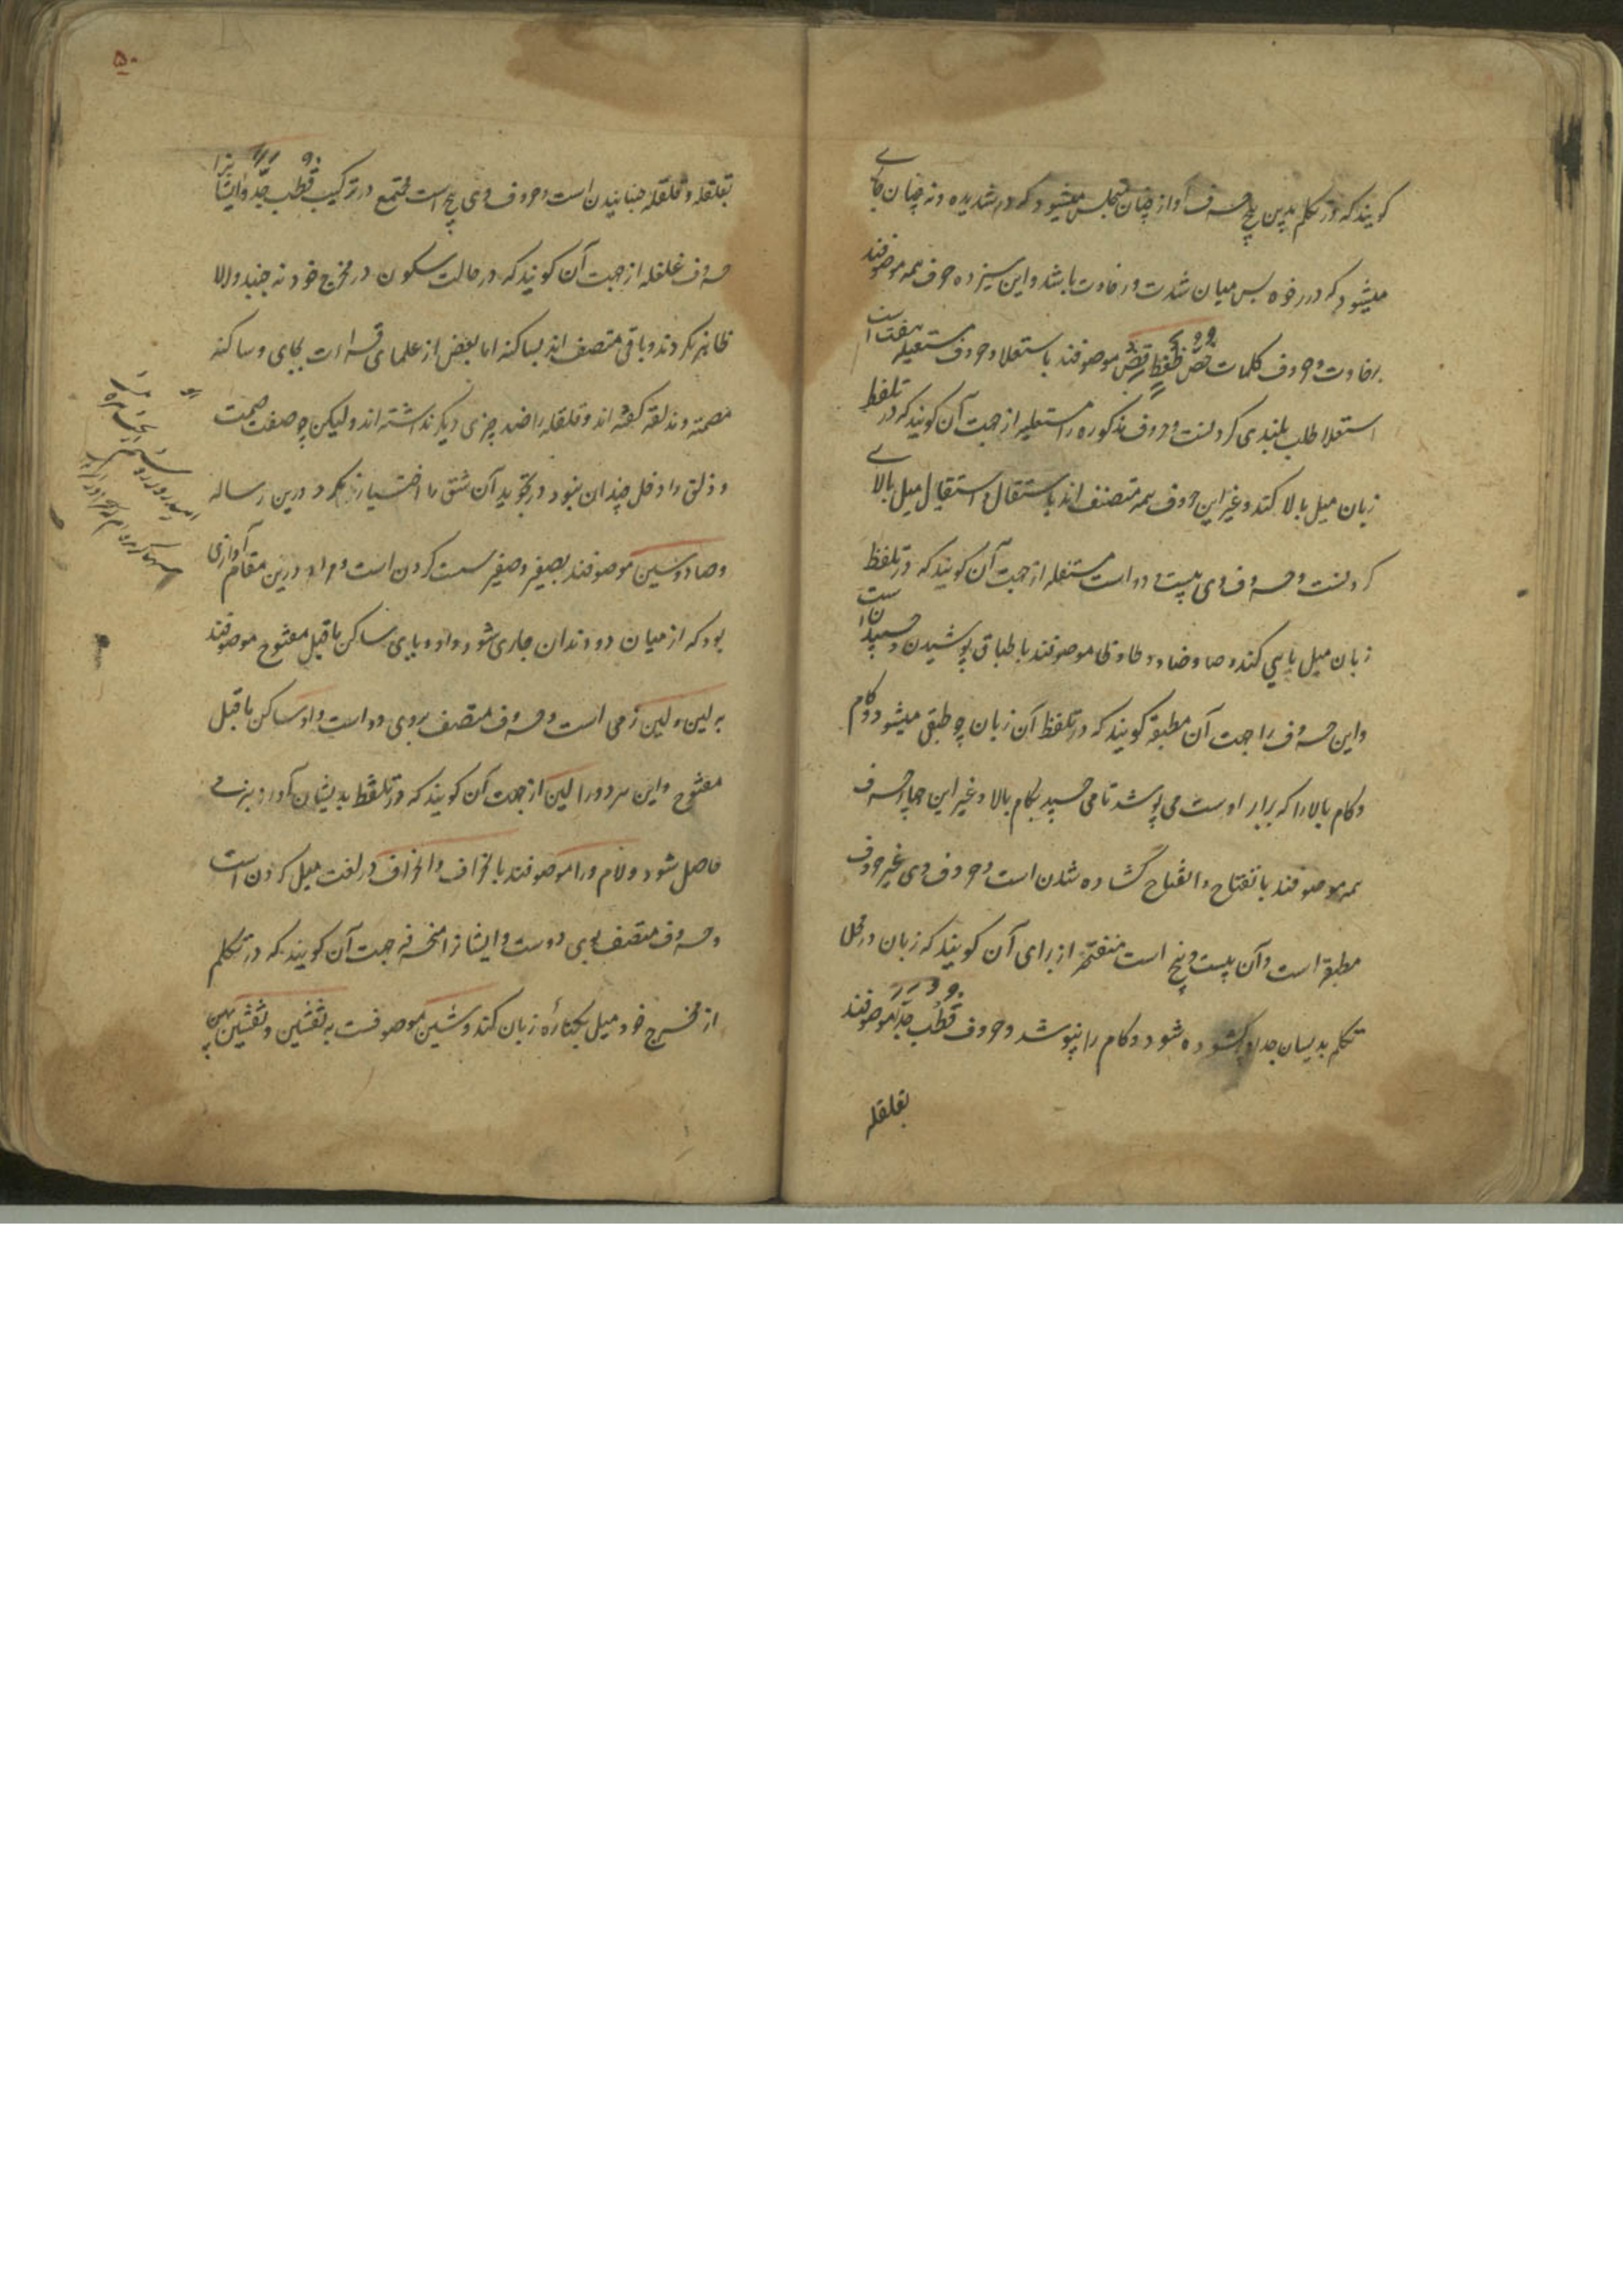 کویند که در تکلم بدین پنج حرف آواز چنان محتبس نمیشود که در شدیده و نه چنان جاری
میشود که در رخوه پس میان شدت و رخاوت باشد و این سیزده حروف همه موصوفند
برخاوت و حروف کلمات خص ضغط قظ موصوفند باستعلا و حروف مستعلیه هفت است
استعلا طلب بلندی کردنست و حروف مذکوره را مستعلیه از جهت آن کویند که در تلفظ
زبان میل بالا کند و غیر این حروف همه متصف اند باستفال و استفال میل بالای
کردنست و حروف وی بیست و دو است مستفله از جهت آن کویند که در تلفظ
زبان میل بپایین کند و صاد و ضاد و طا و ظا موصوفند باطباق پوشیدن و چسپیدن است
و این حروف را جهت آن مطبقه کویند که در تلفظ آن زبان چو طبق میشود و کام
و کام بالا را که برابر اوست می پوشد تا می چسپد بکام بالا و غیر این چهار حرف
همه موصوفند بانفتاح و انفتاح کشاده شدن است و حروف وی غیر حروف
مطبقه است و آن بیست و پنج است منفتحه از برای آن کویند که زبان در محل
تکلم بدیسان جدا و کشوده شود و کام را نپوشد و حروف قطب جد موصوفند
بقلقله
۵۰
بقلقله و قلقله جنبانیدن است و حروف وی پنج است مجتمع در ترکیب قطب جد و ایشانرا
حروف قلقله از جهت آن کویند که در حالت سکون در مخرج خود نه جنبد والا
ظاهر نکردند و باقی متصف اند بساکنه اما بعض از علمای قراءت بجای و ساکنه
مصمته و ذلقه کفته اند و قلقله را ضد چیزی دیکر نداشته اند ولیکن چو صفت صمت
و ذلق را دخل چندان نبود در تجوید آن شق را اختیار نکرد درین رساله
و صاد و سین موصوفند بصفیر و صفیر سست کردن است و مراد درین مقام آوازی
بود که از میان دو دندان جاری شود و واو و یای ساکن ماقبل مفتوح موصوفند
به لین و لین نرمی است و حروف متصف بوی دو است واو ساکن ماقبل
مفتوح و این هر دو را لین از جهت آن کویند که در تلفظ بدیشان آواز بنرمی
حاصل شود و لام و را موصوفند بانحراف و انحراف در لغت میل کردن است
و حروف متصف بوی دوست و ایشانرا منحرفه جهت آن کویند که در تکلم
از مخرج خود میل بکنارهٔ زبان کند و شین موصوفست به تفشی و تفشی پهن